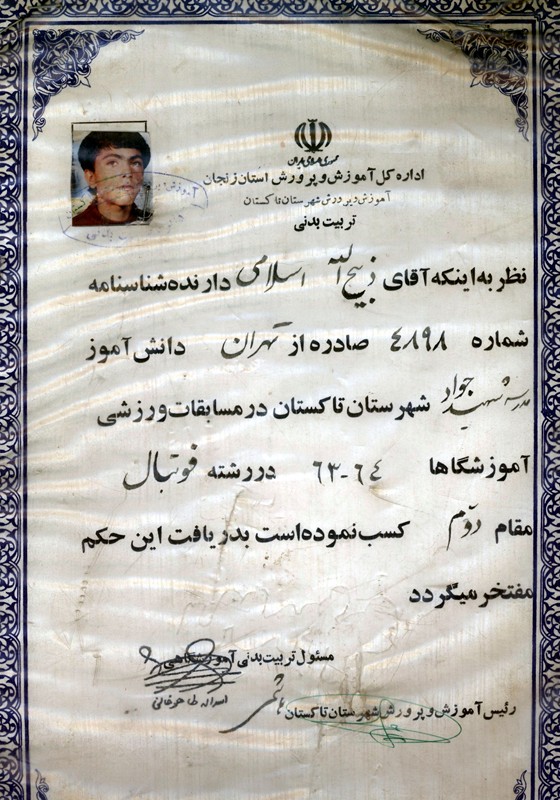 جمهوری اسلامی ایران
اداره کل آموزش و پرورش استان زنجان
آموزش و پرورش شهرستان تاکستان
تربیت بدنی
نظر به اینکه آقای ذبیح الله اسلامی دارنده شناسنامه
شماره ۴۸۹۸ صادره از تهران دانش آموز
مدرسه شهید جواد شهرستان تاکستان در مسابقات ورزشی
آموزشگاها ۶۳-۶۴ در رشته فوتبال
مقام دوم کسب نموده است بدریافت این حکم
مفتخر میگردد
مسئول تربیت بدنی آموزشگاهی
رئیس آموزش و پرورش شهرستان تاکستان